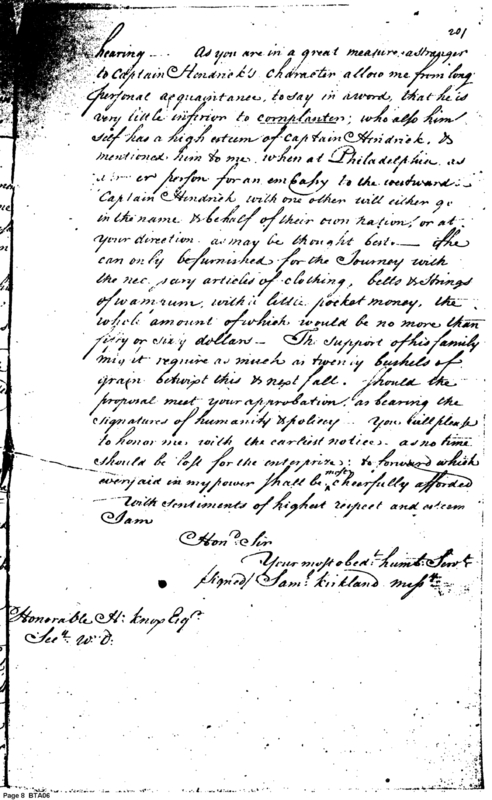 201
hearing — As you are in a great measure a stranger
to Captain Hendrick's character allow me from long
personal acquaintance, to say in a word, that he is
very little inferior to cornplanter; who also him
self has a high esteem of Captain Hindrick, &
mentioned him to me, when at Philadelphia as
er person for an embassy to the westward.
Captain Hendrick with one other will either go
in the name & behalf of their own nation, or at
your direction as may be thought best. — If he
can only be furnished for the Journey with
the nec sary articles of clothing, belts & strings
of wampum, with a little pocket money, the
whole amount of which would be no more than
fifty or sixty dollars — The support of his family
might require as much as twenty bushels of
grain betwixt this & next fall. Should the
proposal meet your approbation, as bearing the
signatures of humanity & policy — You will please
to honor me with the earliest notice. as no time
should be lost for the enterprize; to forward which
every aid in my power shall be most cheerfully afforded
With sentiments of highest respect and esteem
I am
Hond. Sir
Your most obedt. humb. Servt.
(signed) Saml. Kirkland Missy.
Honorable H. Knox Esqr.
Secy. W. D.
Page 8 BTA06